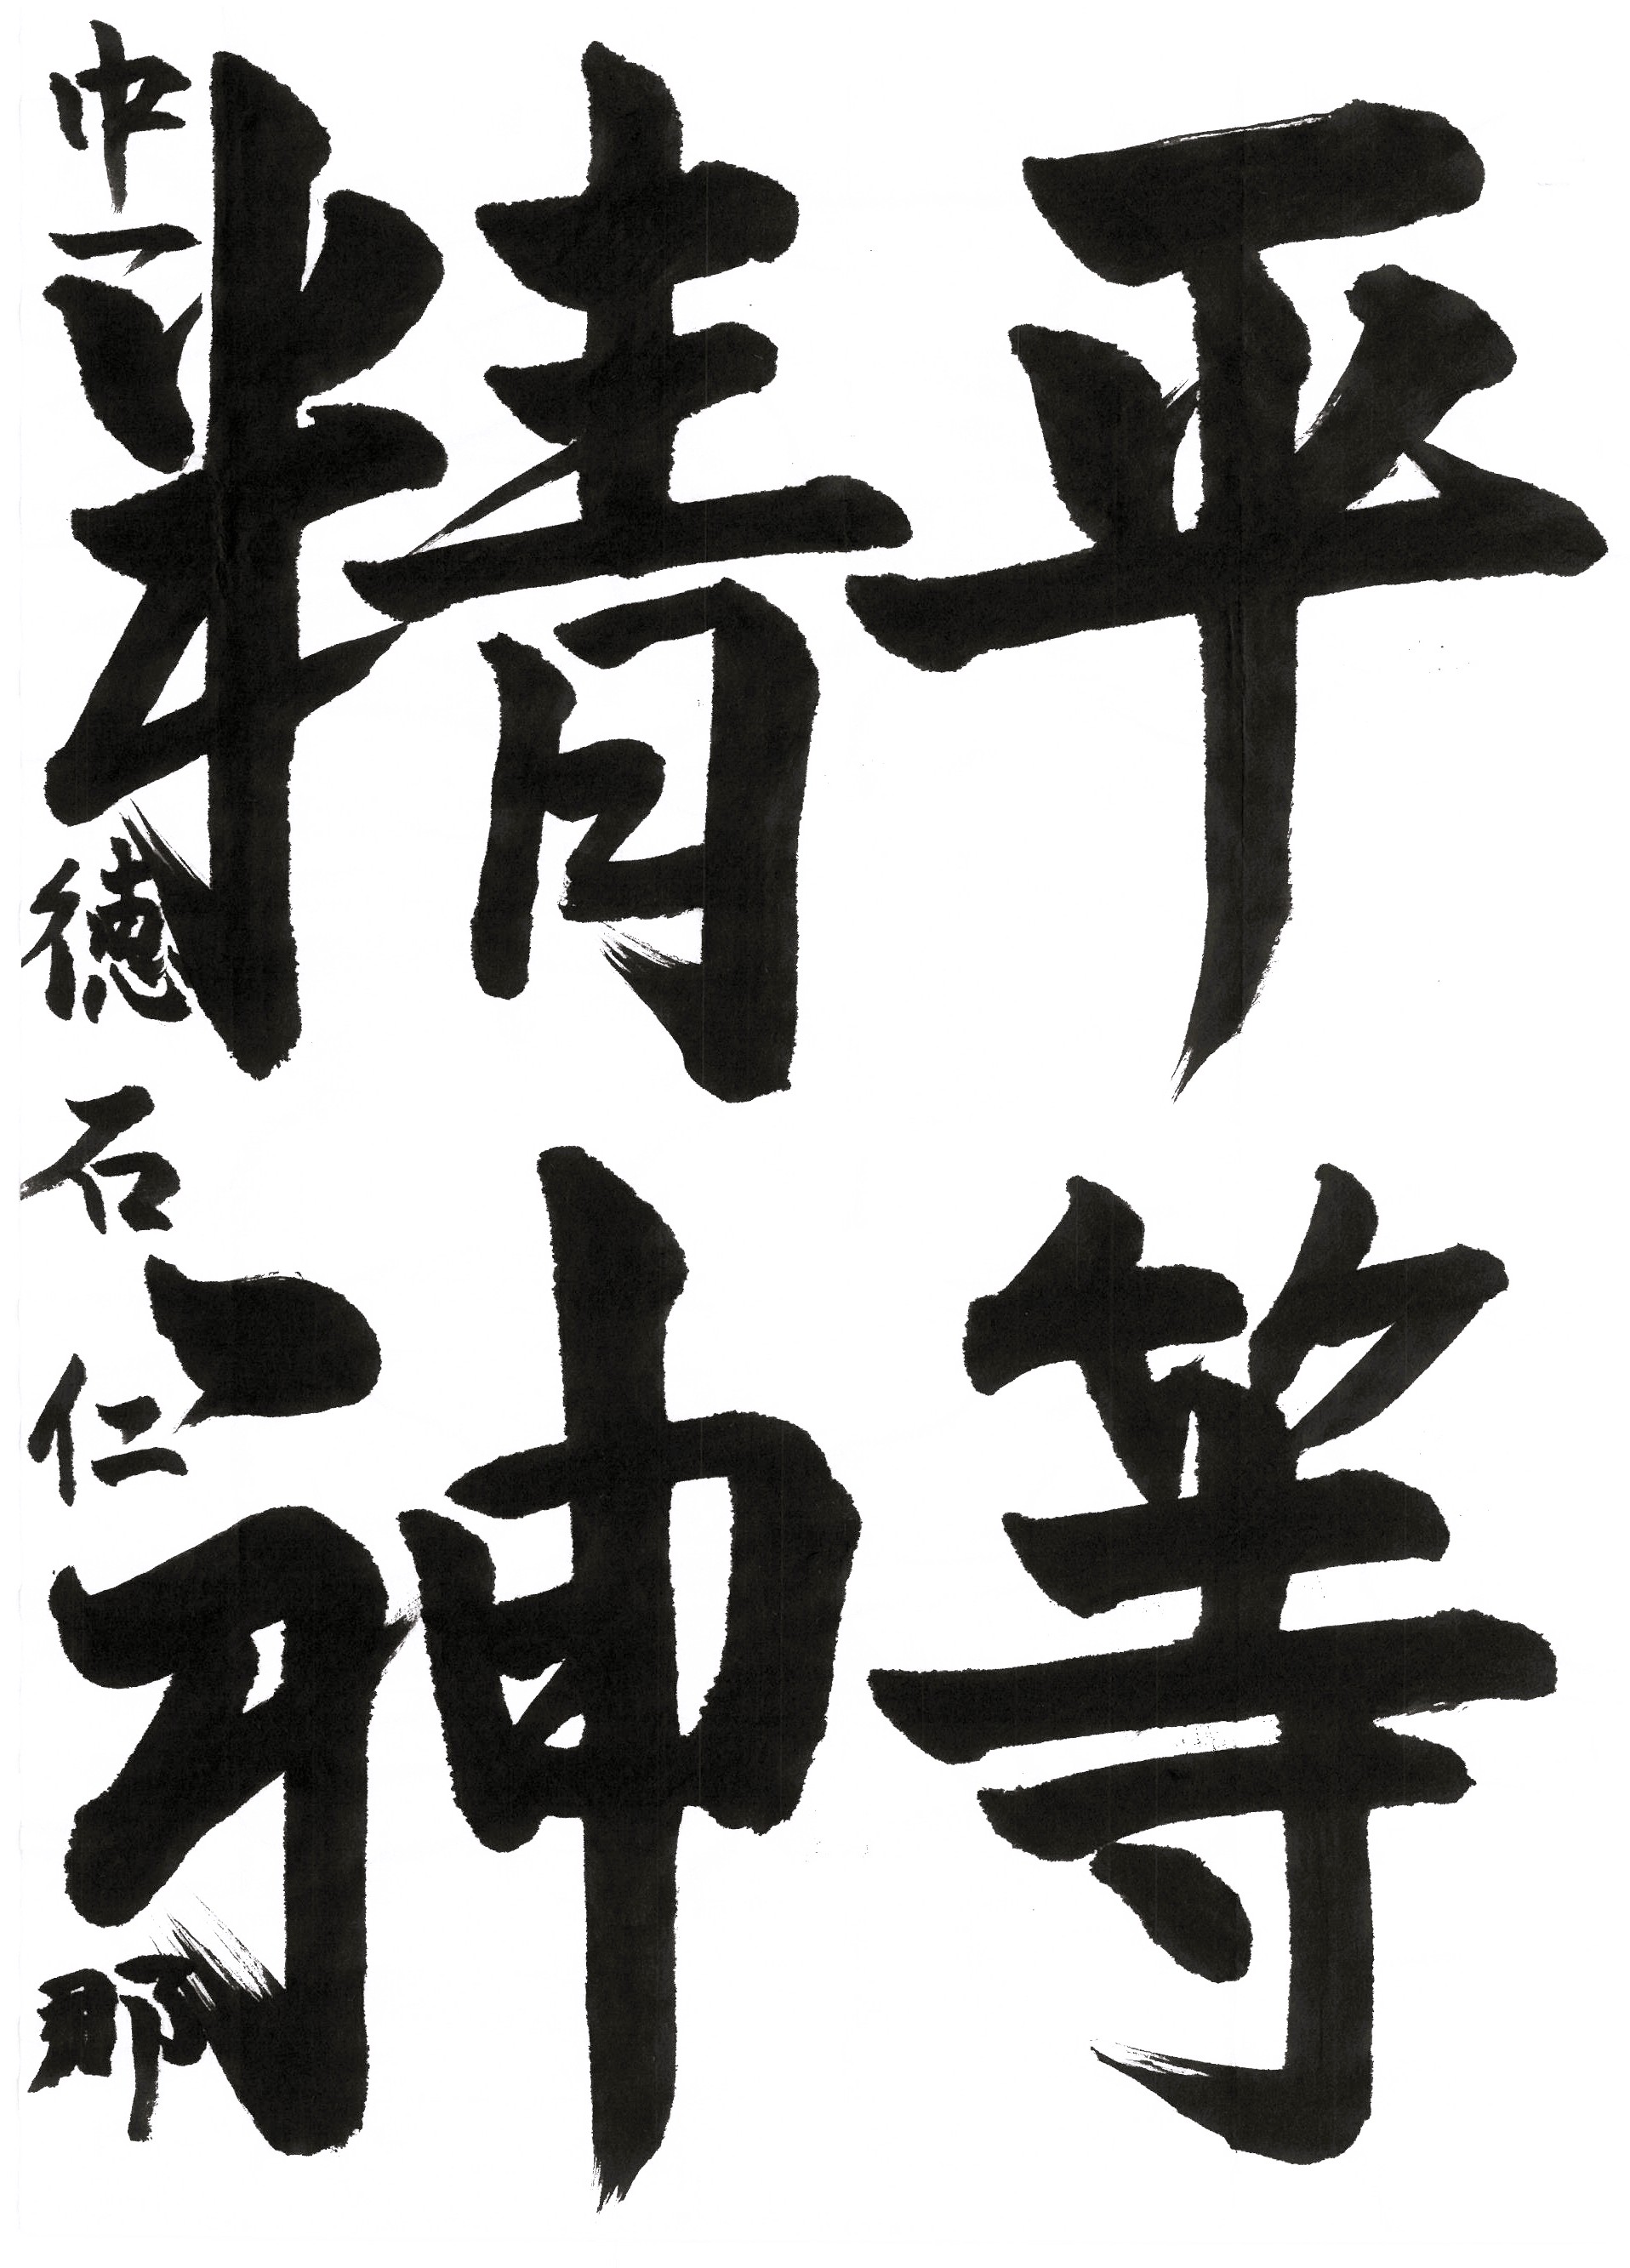 平等
精神
中一 徳石仁那